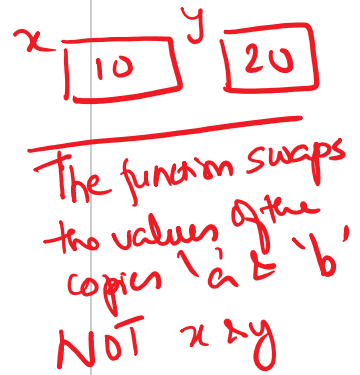 x 10 y 20
The function swaps
the values of the
copies 'a' & 'b'
NOT x & y